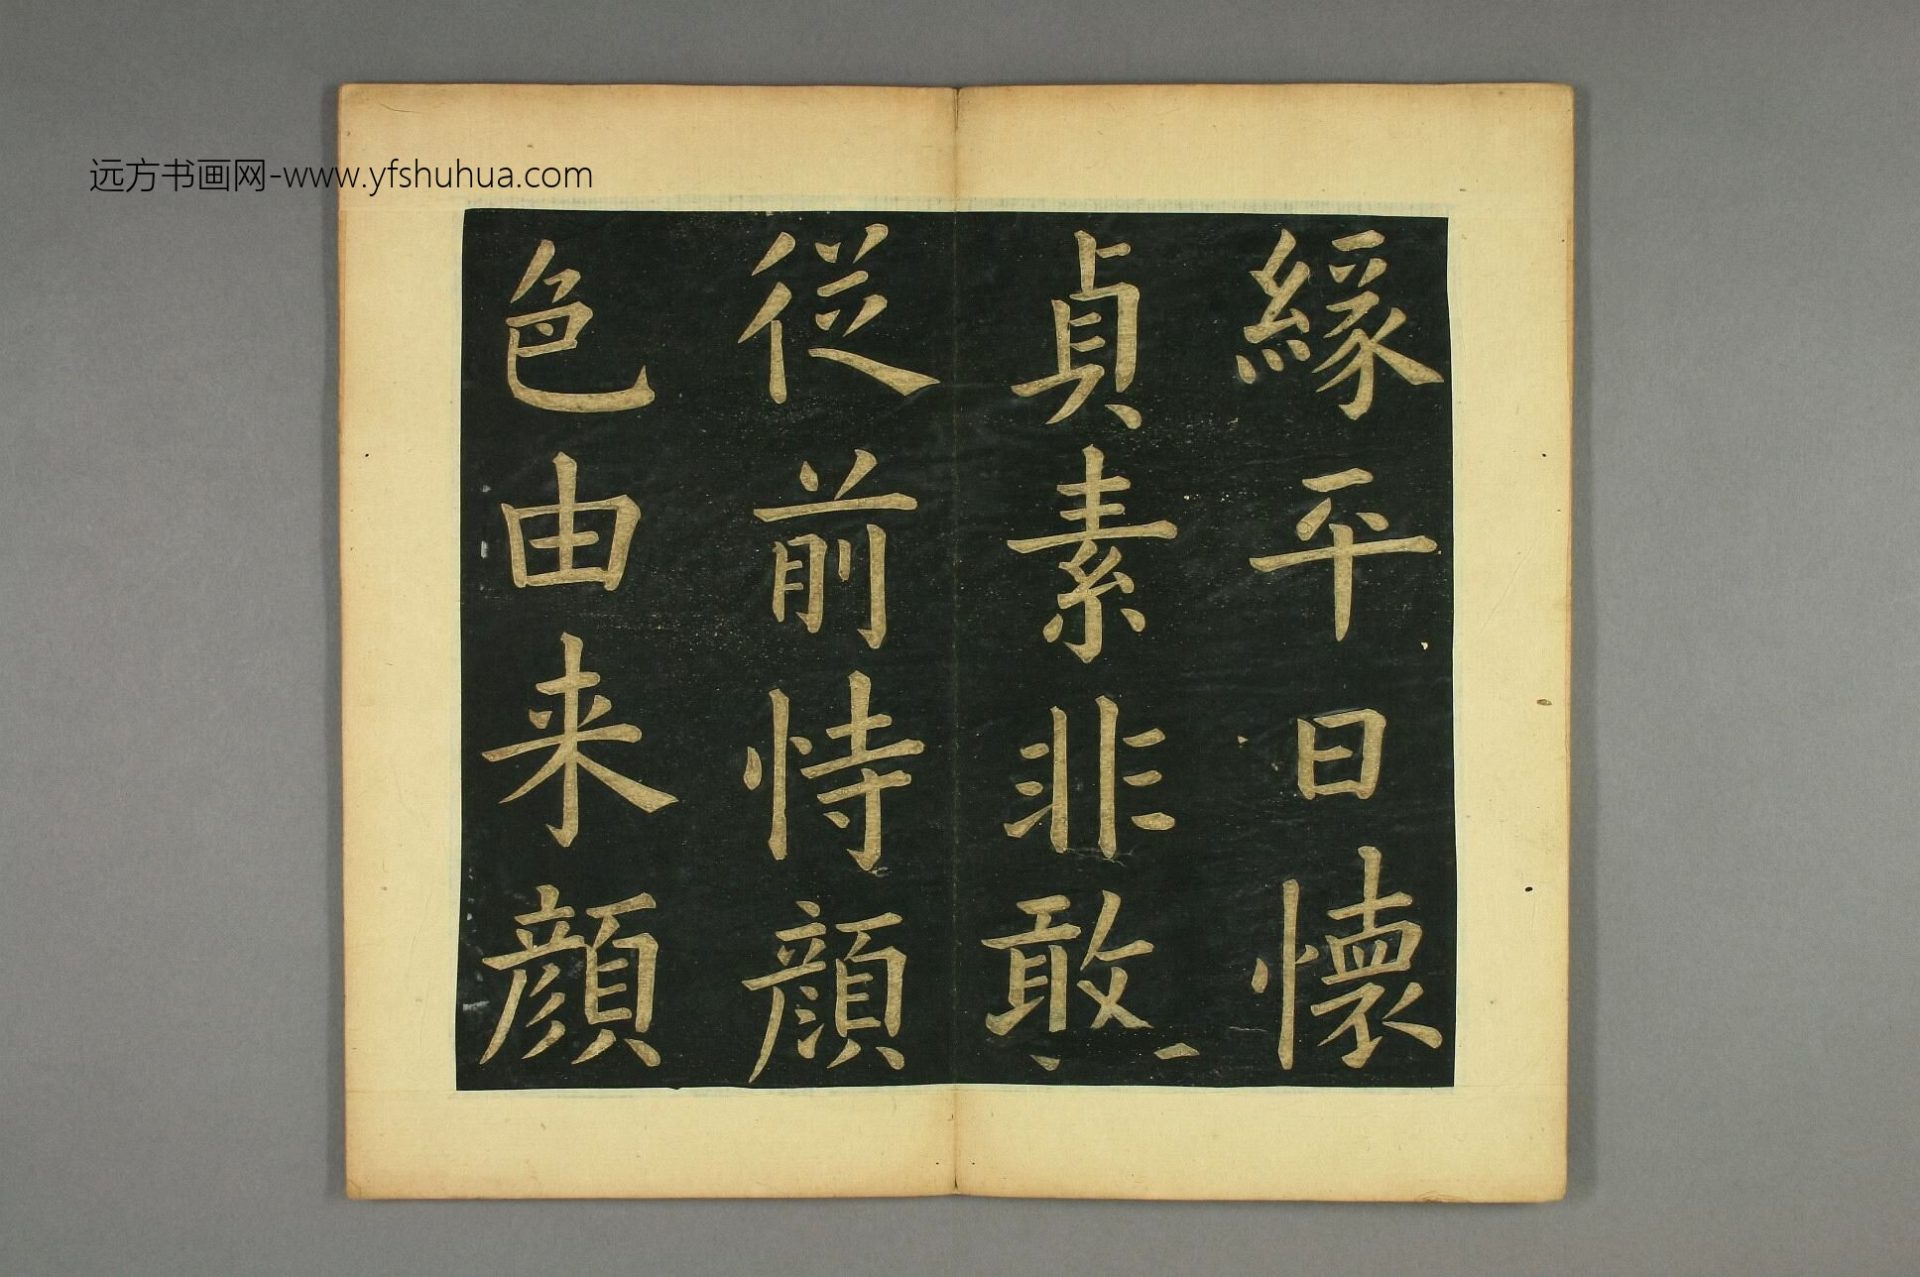 远方书画网-www.yfshuhua.com
緣平日懷
貞素非敢
従前恃顔
色由来顔